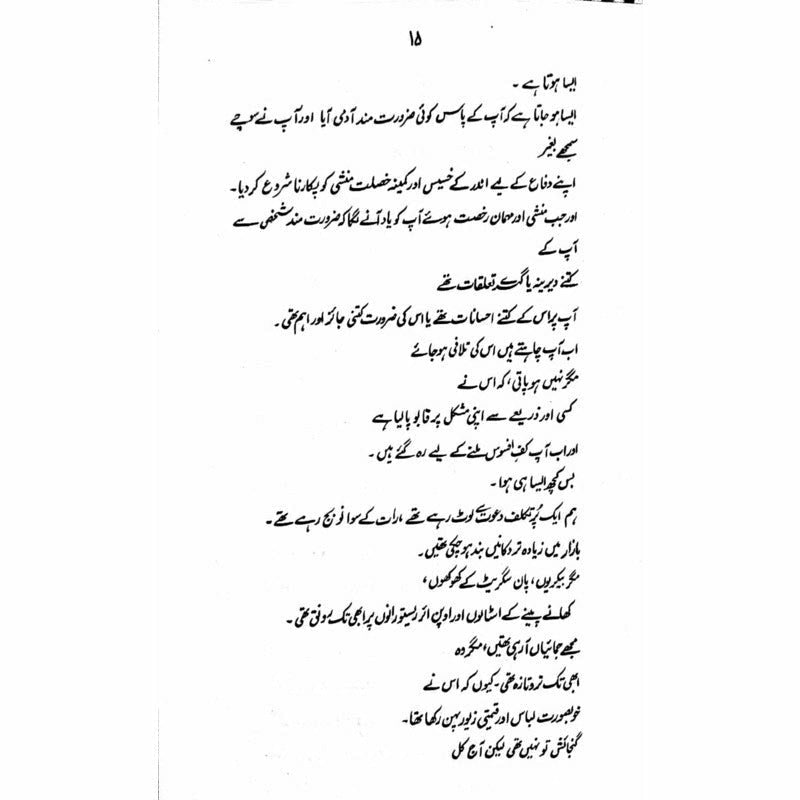 ۱۵
ایسا ہوتا ہے ۔
ایسا ہو جاتا ہے کہ آپ کے پاس کوئی ضرورت مند آدمی آیا اور آپ نے سوچے
سمجھے بغیر
اپنے دفاع کے لیے اندر کے خسیس اور کمینہ خصلت منشی کو پکارنا شروع کر دیا۔
اور جب منشی اور مہمان رخصت ہوئے آپ کو یاد آنے لگا کہ ضرورت مند شخص سے
آپ کے
کتنے دیرینہ یا گہرے تعلقات تھے
آپ پر اس کے کتنے احسانات تھے یا اس کی ضرورت کتنی جائز اور اہم تھی ۔
اب آپ چاہتے ہیں اس کی تلافی ہو جائے
مگر نہیں ہو پاتی ، کہ اس نے
کسی اور ذریعے سے اپنی مشکل پر قابو پا لیا ہے
اور اب آپ کفِ افسوس ملنے کے لیے رہ گئے ہیں ۔
بس کچھ ایسا ہی ہوا ۔
ہم ایک پُرتکلف دعوت سے لوٹ رہے تھے ، رات کے سوا نو بج رہے تھے ۔
بازار میں زیادہ تر دکانیں بند ہو چکی تھیں ۔
مگر بیکریوں ، پان سگریٹ کے کھوکھوں ،
کھانے پینے کے اسٹالوں اور اوپن ائر ریستورانوں پر ابھی تک رونق تھی ۔
مجھے جمائیاں آ رہی تھیں ، مگر وہ
ابھی تک تروتازہ تھی ۔ کیوں کہ اس نے
خوبصورت لباس اور قیمتی زیور پہن رکھا تھا۔
گنجائش تو نہیں تھی لیکن آج کل